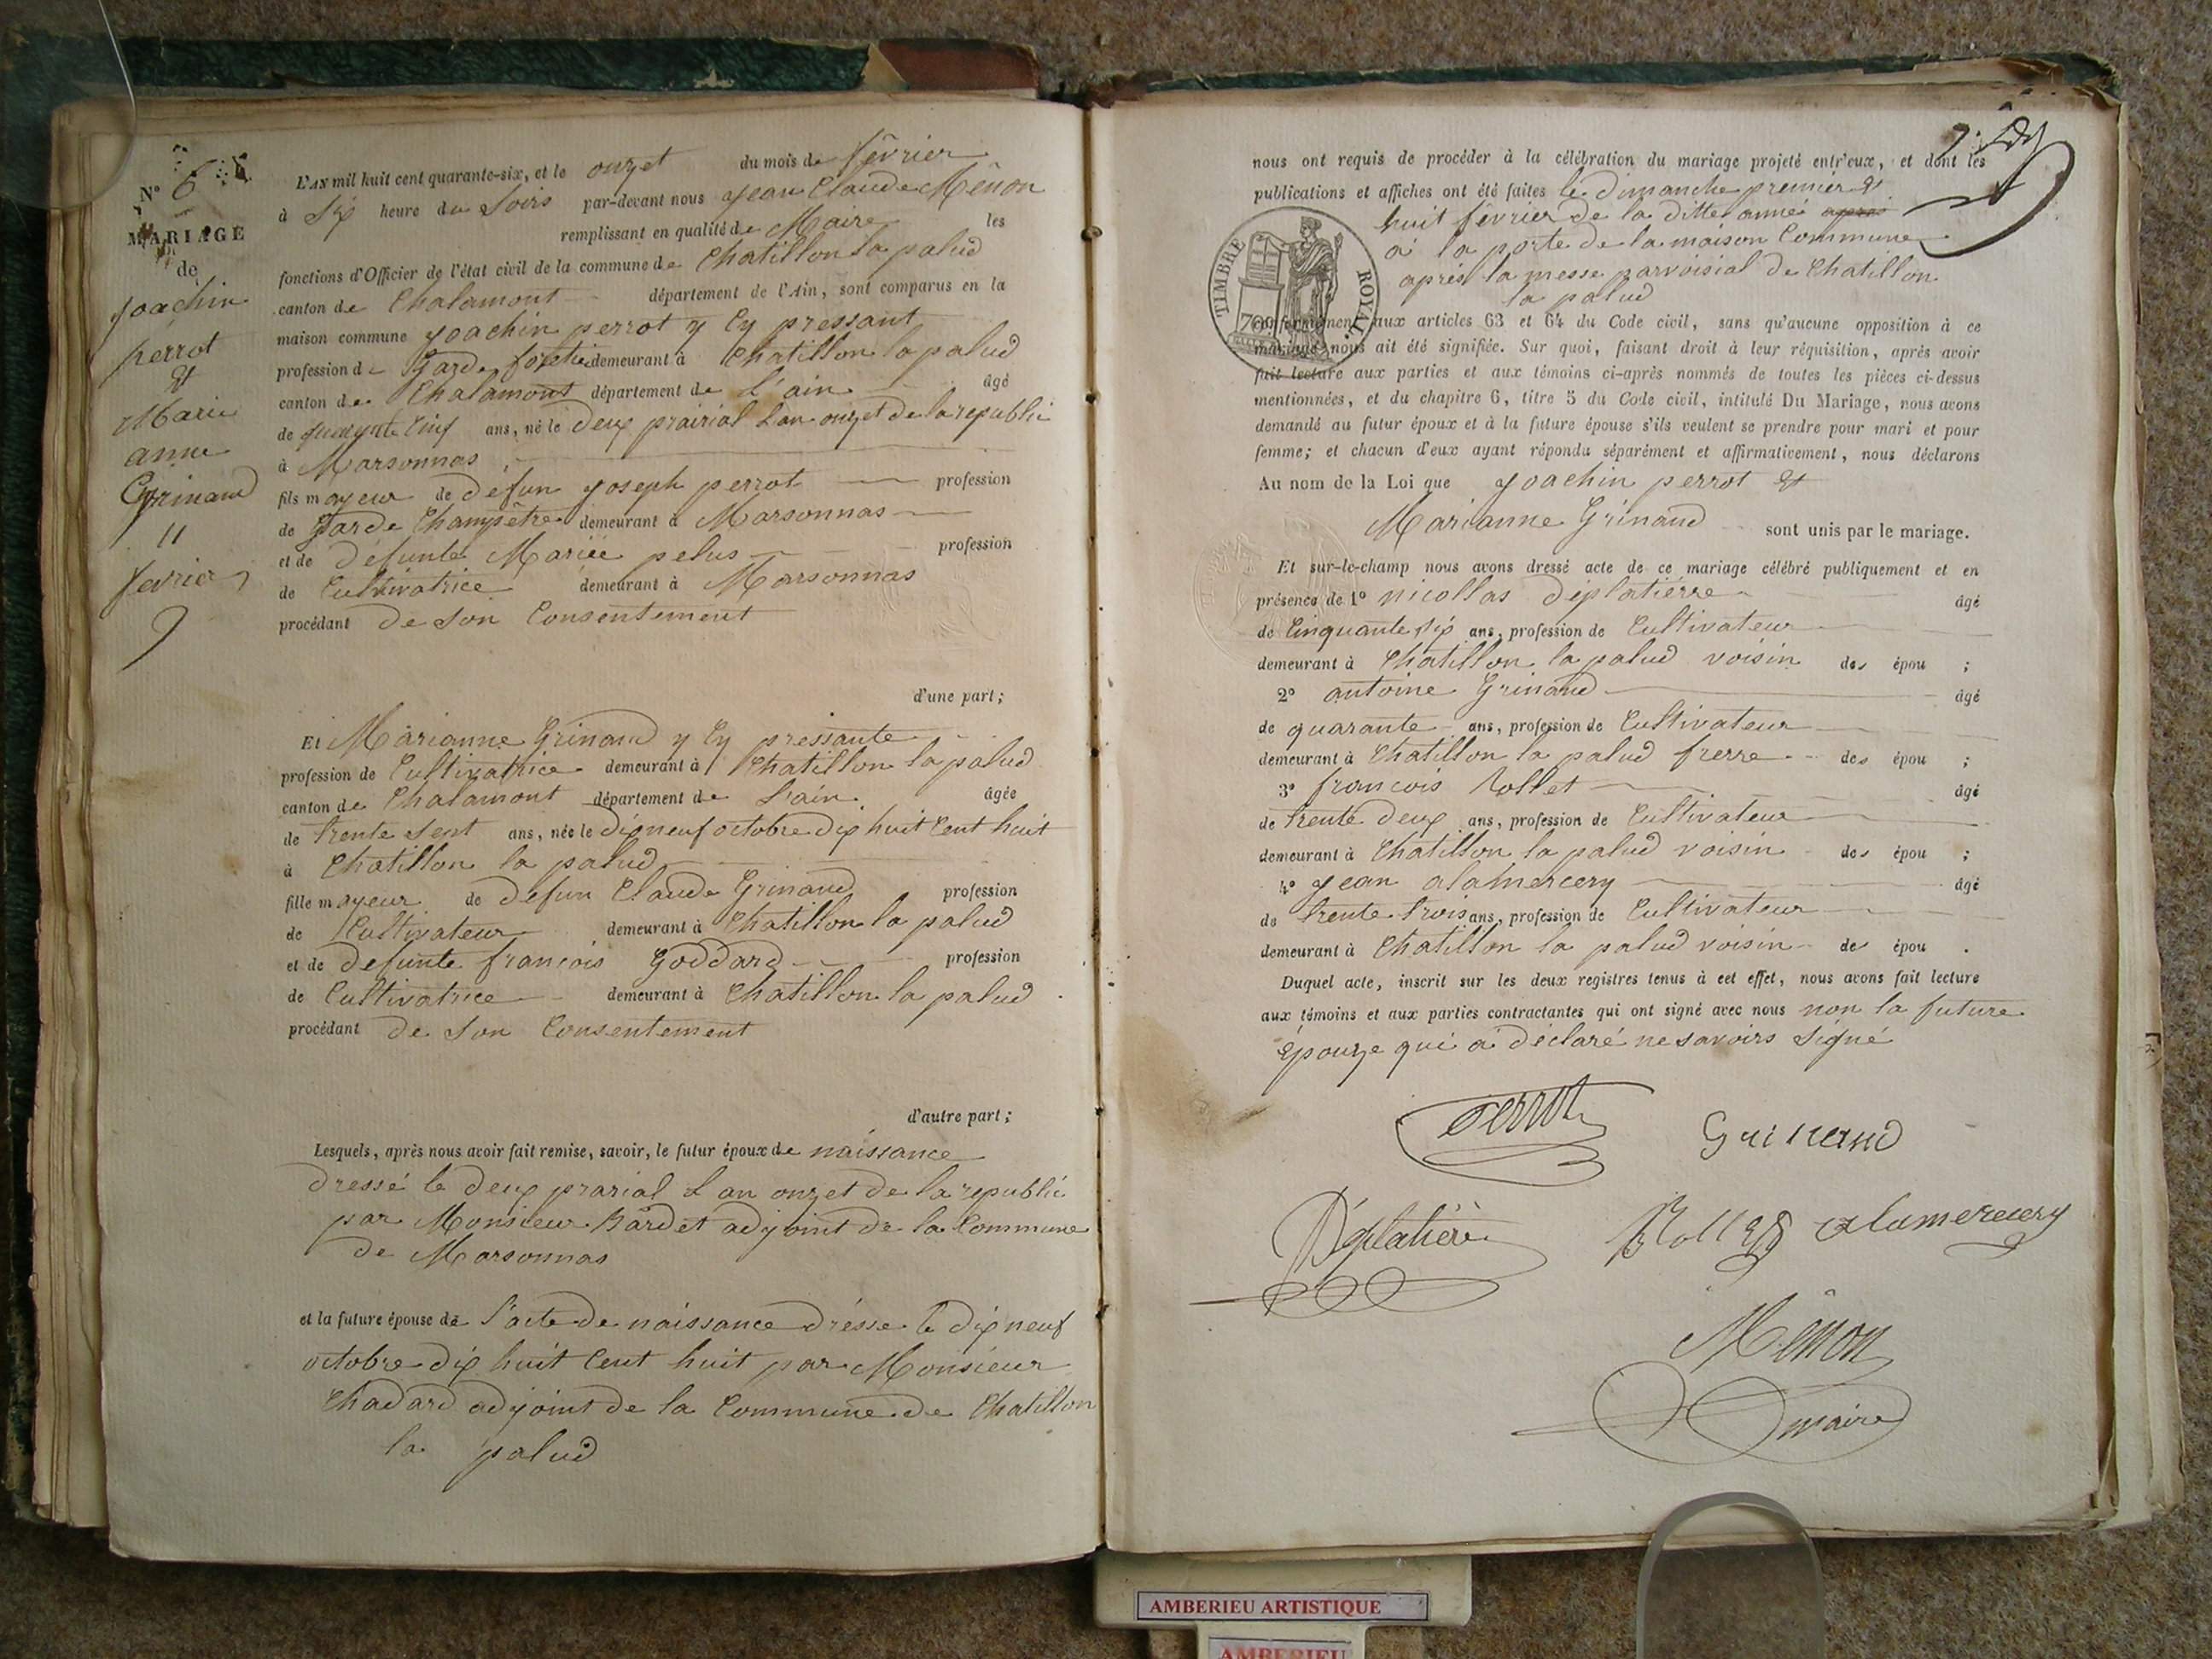 N° 6
MARIAGE
de
Joachin
perrot
et
Marie
anne
Grinand
11
fevrier
L'AN mil huit cent quarante-six, et le onzet du mois de février
à Six heure du Soirs par-devant nous jean Claude Mênon
remplissant en qualité de Maire les
fonctions d'Officier de l'état civil de la commune de Chatillon la palud
canton de Chalamont département de l'Ain, sont comparus en la
maison commune joachin perrot y Cy pressant
profession de Garde foretie demeurant à Chatillon la palud
canton de Chalamont département de l'ain âgé
de quarynte Cinq ans, né le deux prairial L'an onzet de la republic
à Marsonnas
fils mayeur de défun joseph perrot profession
de Garde Champêtre demeurant à Marsonnas
et de défunte Mariée pelus profession
de Cultivatrice demeurant à Marsonnas
procédant de Son Consentement
d'une part;
Et Marianne Grinand y Cy pressante
profession de Cultivatrice demeurant à Chatillon la palud
canton de Chalamont département de L'ain âgée
de trente sept ans, née le dix neuf octobre dix huit Cent huit
à Chatillon la palud
fille mayeur de défun Claude Grinand profession
de Cultivateur demeurant à Chatillon la palud
et de defunte francois Goddard profession
de Cultivatrice demeurant à Chatillon la palud
procédant de Son Consentement
d'autre part;
Lesquels, après nous avoir fait remise, savoir, le futur époux de naissance
dressé le deux prarial L'an onzet de la republic
par Monsieur Bardet adjoint de la Commune
de Marsonnas
et la future épouse de l'acte de naissance drésse le dix neuf
octobre dix huit Cent huit par Monsieur
Chadard adjoint de la Commune de Chatillon
la palud
nous ont requis de procéder à la célébration du mariage projeté entr'eux, et dont les
publications et affiches ont été faites le dimanche premier et
huit février de la ditte anné apres
à la porte de la maison Commune
après la messe parroisial de Chatillon
la palud
TIMBRE ROYAL
conformément aux articles 63 et 64 du Code civil, sans qu'aucune opposition à ce
mariage nous ait été signifiée. Sur quoi, faisant droit à leur réquisition, après avoir
fait lecture aux parties et aux témoins ci-après nommés de toutes les pièces ci-dessus
mentionnées, et du chapitre 6, titre 5 du Code civil, intitulé Du Mariage, nous avons
demandé au futur époux et à la future épouse s'ils veulent se prendre pour mari et pour
femme; et chacun d'eux ayant répondu séparément et affirmativement, nous déclarons
Au nom de la Loi que joachin perrot et
Marianne Grinand sont unis par le mariage.
Et sur-le-champ nous avons dressé acte de ce mariage célébré publiquement et en
présence de 1° nicollas déplatiérre âgé
de Cinquante six ans, profession de Cultivateur
demeurant à Chatillon la palud voisin des épou ;
2° antoine Grinand âgé
de quarante ans, profession de Cultivateur
demeurant à Chatillon la palud frerre des épou ;
3° francois Rollet âgé
de trente deux ans, profession de Cultivateur
demeurant à Chatillon la palud voisin des épou ;
4° jean alamercery âgé
de trente trois ans, profession de Cultivateur
demeurant à Chatillon la palud voisin des épou .
Duquel acte, inscrit sur les deux registres tenus à cet effet, nous avons fait lecture
aux témoins et aux parties contractantes qui ont signé avec nous non la future
épouze qui a déclaré ne savoirs Signé
Perrot
Guinand
Déplatière
Rollet
alamercery
Mênon
maire
AMBERIEU ARTISTIQUE
AMBERIEU